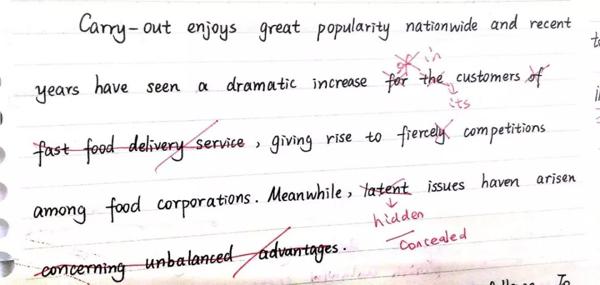 Carry-out enjoys great popularity nationwide and recent
of in
years have seen a dramatic increase for the customers of
its
fast food delivery service, giving rise to fiercely competitions
among food corporations. Meanwhile, latent issues haven arisen
hidden
concealed
concerning unbalanced advantages.